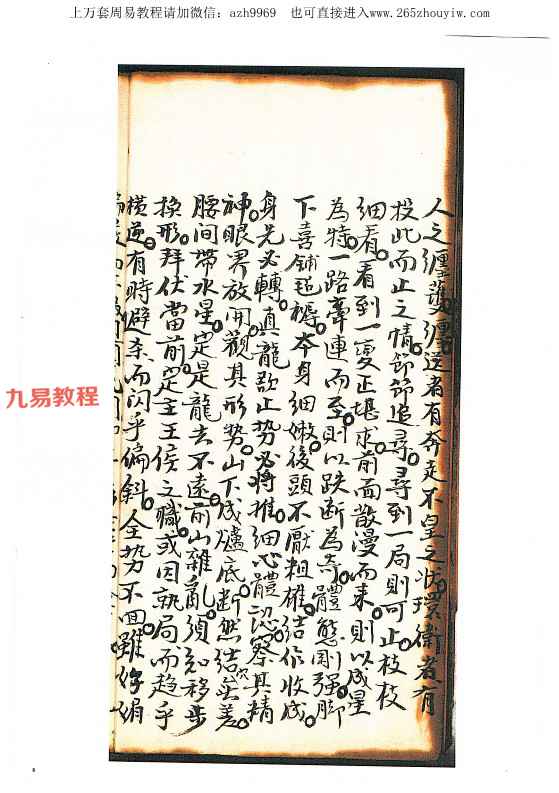 上万套周易教程请加微信：azh9969 也可直接进入www.265zhouyiw.com
人之纏護纏送者有奔走不皇之状環衛者有
投此而止之情節節追尋尋到一局則可止枝枝
細看看到一变止堪求前面散漫而来則以成星
為特一路牽連而至則以跌断為奇體態剛强脚
下喜鋪毡褥本身細嫩後頭不厭粗雄結作收成
身先必轉真龍欲止势必将推細心體認察其精
神眼界放開觀其形势山下成爐底断然結穴無差
腰間带水星定是龍去不遠前山雜亂須知移步
换形拜伏當前定主王侯之職或因執局而趋乎
横逆有時避杀而闪乎偏斜全势不回雖
九易教程